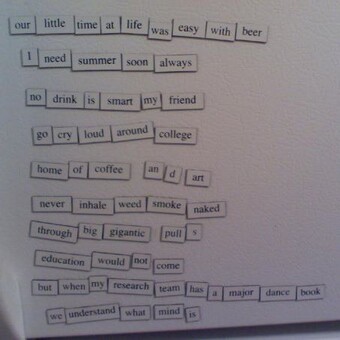 our little time at life was easy with beer
I need summer soon always
no drink is smart my friend
go cry loud around college
home of coffee an d art
never inhale weed smoke naked
through big gigantic pull s
education would not come
but when my research team has a major dance book
we understand what mind is